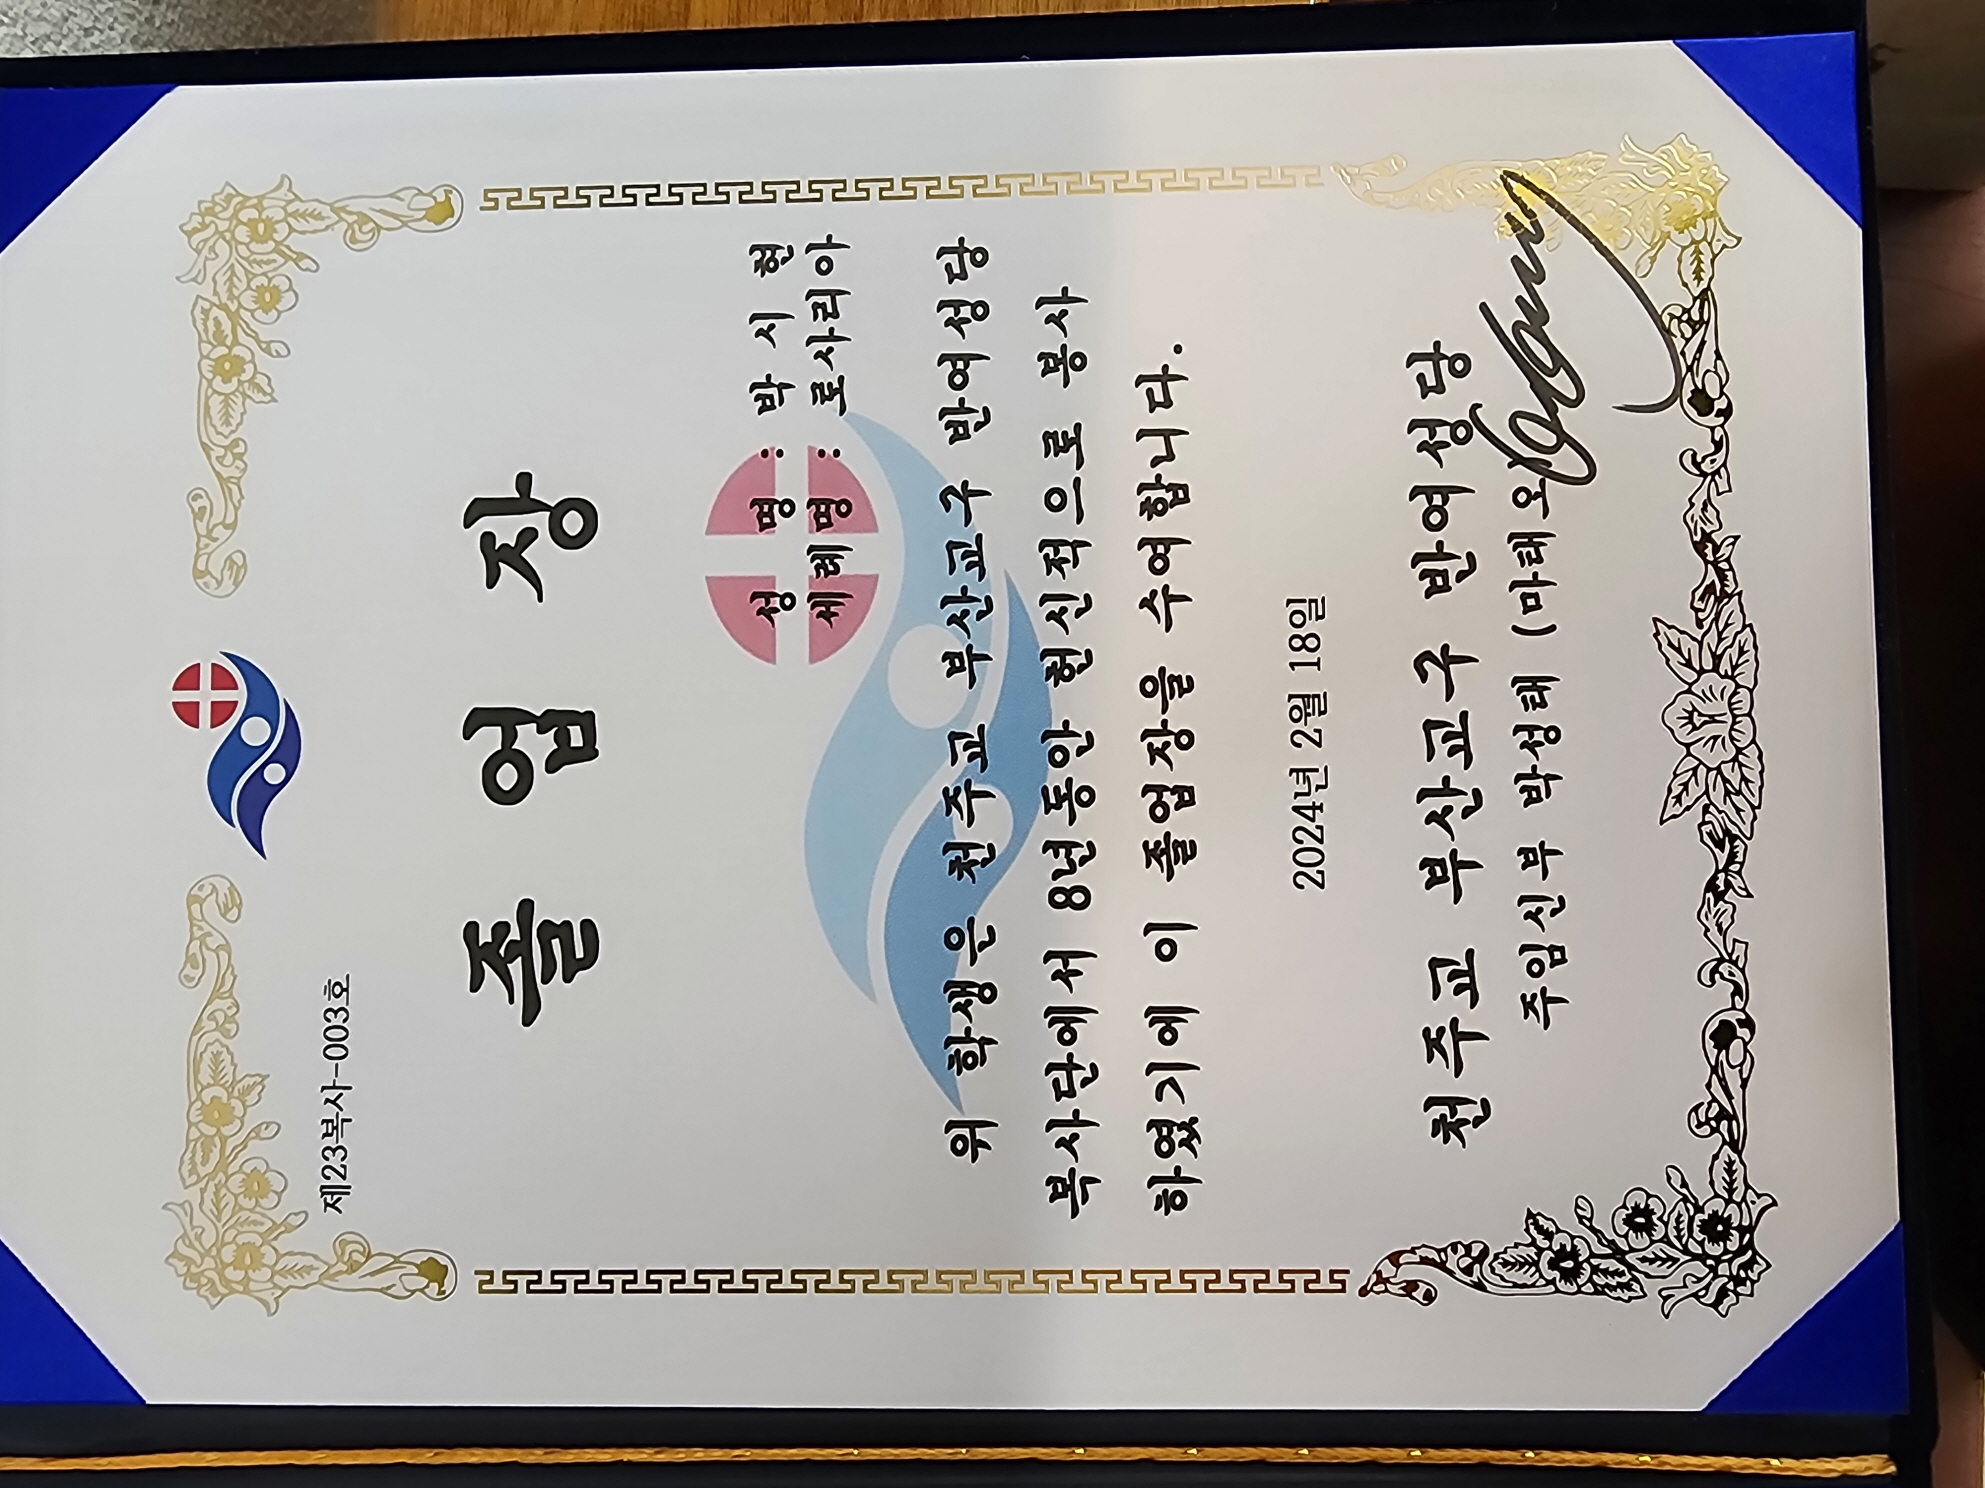 제23복사-003호
졸 업 장
성 명 : 박 시 현
세 례 명 : 로사리아
위 학생은 천주교 부산교구 반여성당
복사단에서 8년동안 헌신적으로 봉사
하였기에 이 졸업장을 수여합니다.
2024년 2월 18일
천주교 부산교구 반여성당
주임신부 박성태 (마태오)